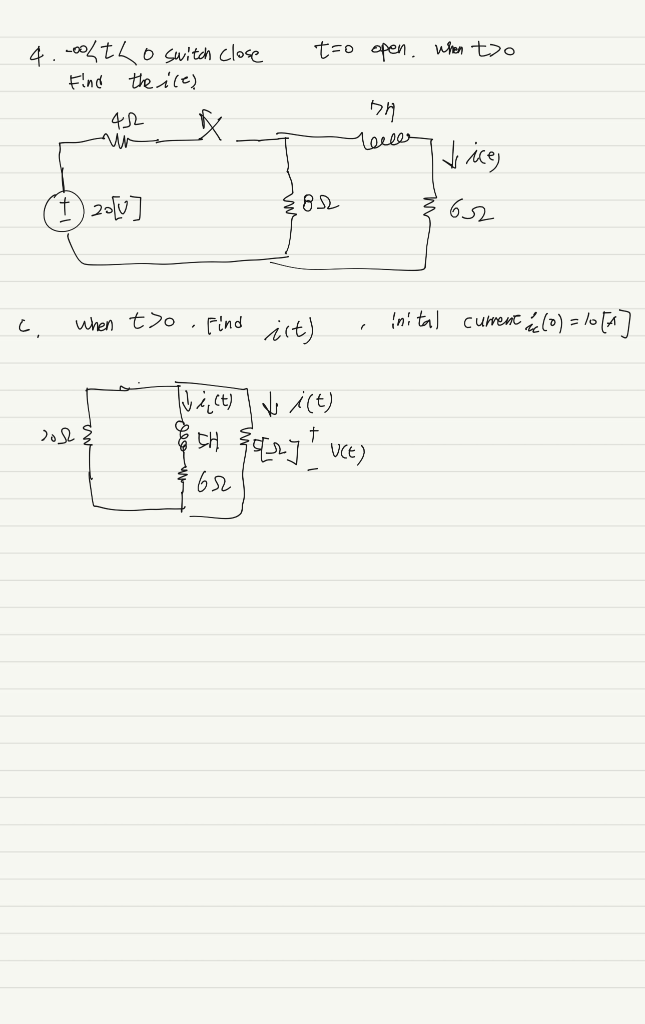 4. -∞<t<0 switch close t=0 open. when t>0
Find the i(t)
4Ω
7H
↓ i(t)
20[V]
8Ω
6Ω
when t>0. Find i(t), inital current iL(0)=10[A]
20Ω
↓iL(t)
↓ i(t)
5H
5[Ω]
+
V(t)
-
6Ω